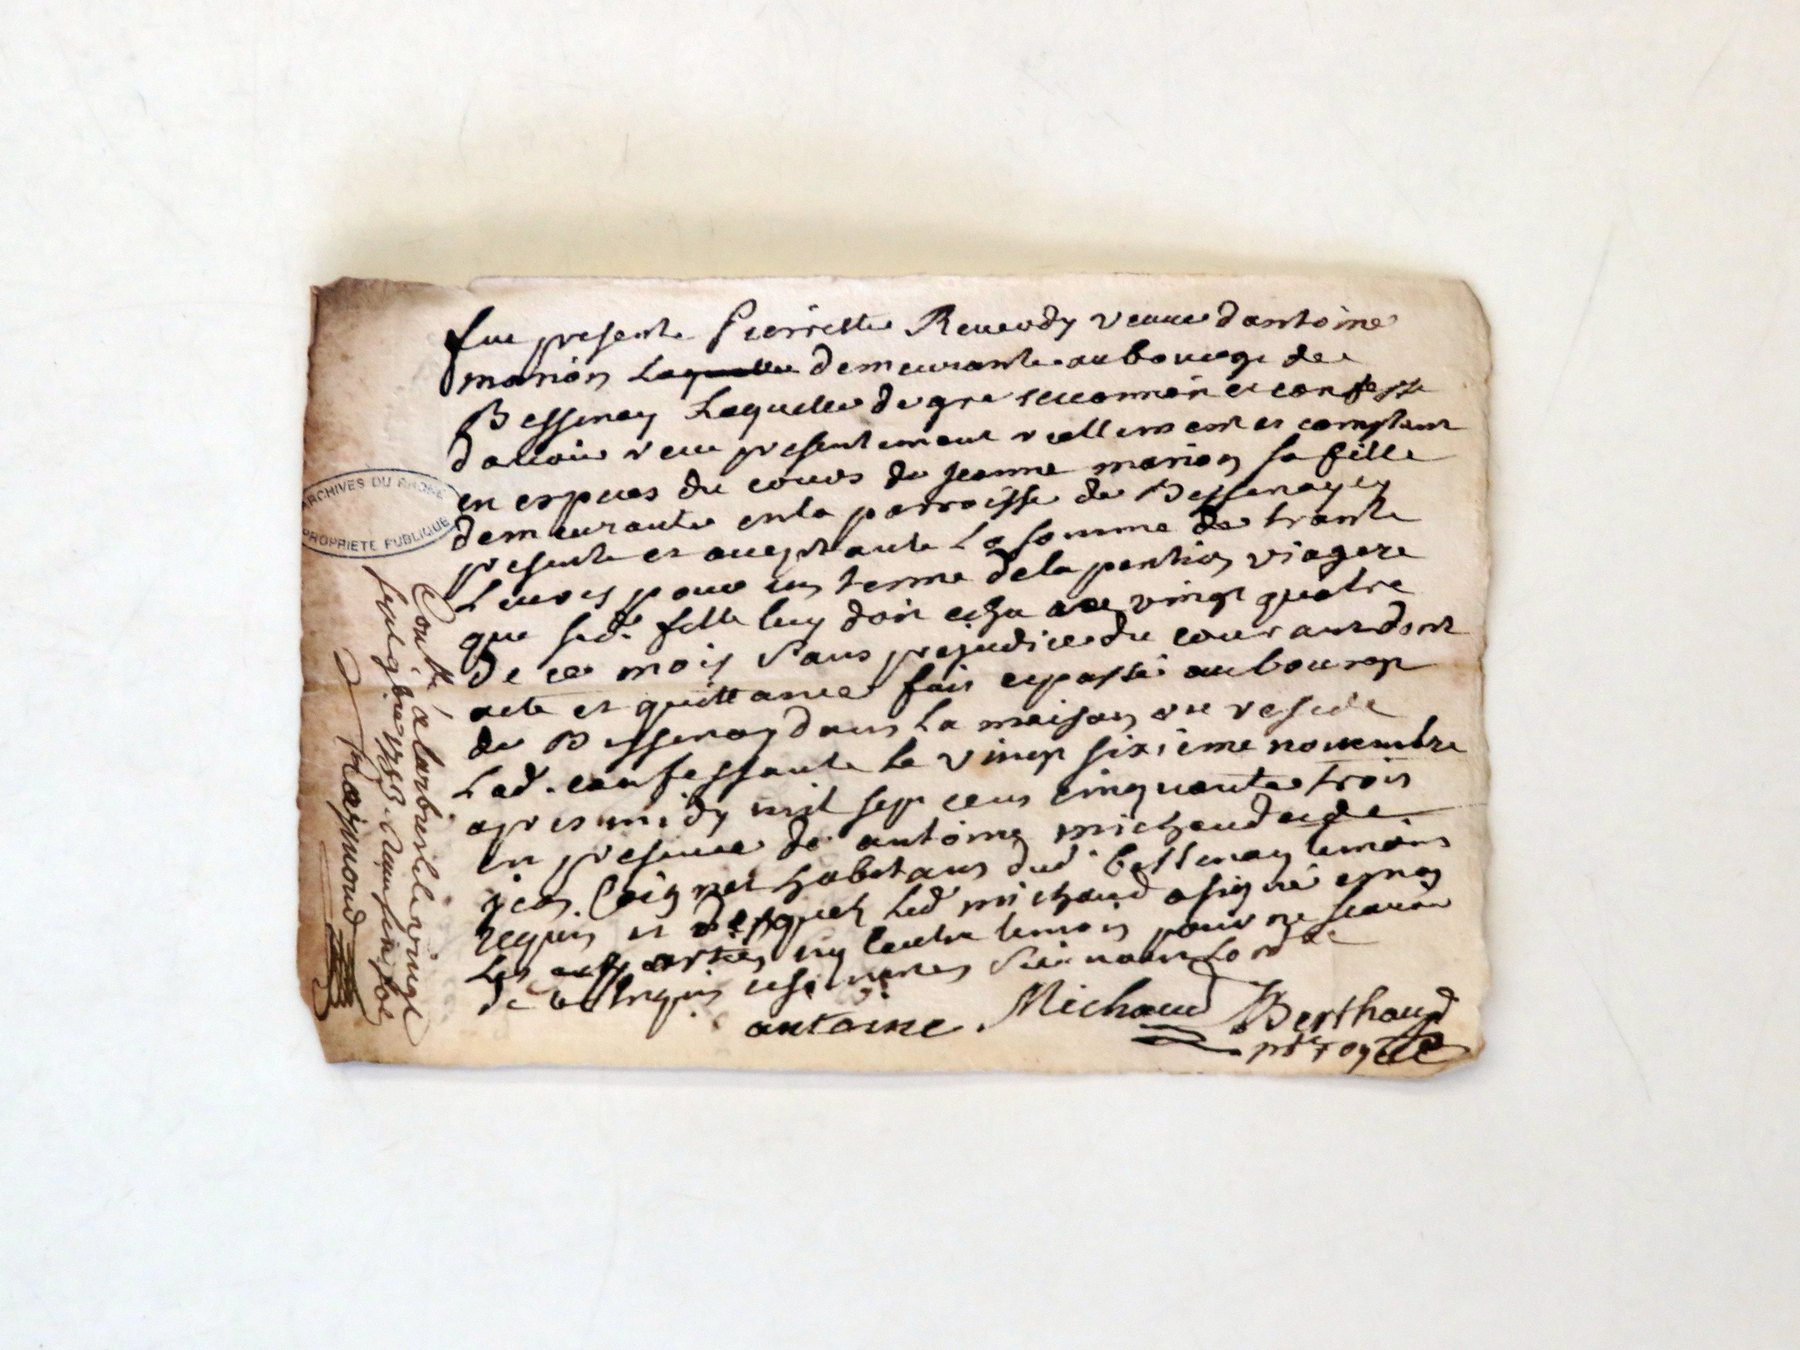 fut presente Pierrette Reverdy veuve d'antoine
marion laquelle demeurante au bourg de
Bessenay Laquelle de gre reconnoit et confesse
d'avoir receu presentement reellement et comptant
en especes du cours de jeanne marion sa fille
demeurante en la parroisse de Bessenay icy
presente et acceptante La somme de trante
Livres pour un terme de la pention viagere
que sed. fille luy doit echu vingt quatre
de ce mois sans prejudice du courant dont
acte et quittance fait et passé au bourg
de Bessenay dans La maison ou reside
Lad. confessante le vingt sixieme novembre
apres midy mil sept cens cinquante trois
en presence de antoine michaud et de
jean Coignet habitans dud. bessenay temoins
requis et desquels Led michaud a signé et non
Les parties ny lautre temoin pour ne scavoir
de ce enquis
antoine Michaud Berthaud
not. royal
Contlé a larbresle le vingt
sept 9bre 1753. Reçu
Raymond
ARCHIVES DU RHÔNE
PROPRIETE PUBLIQUE